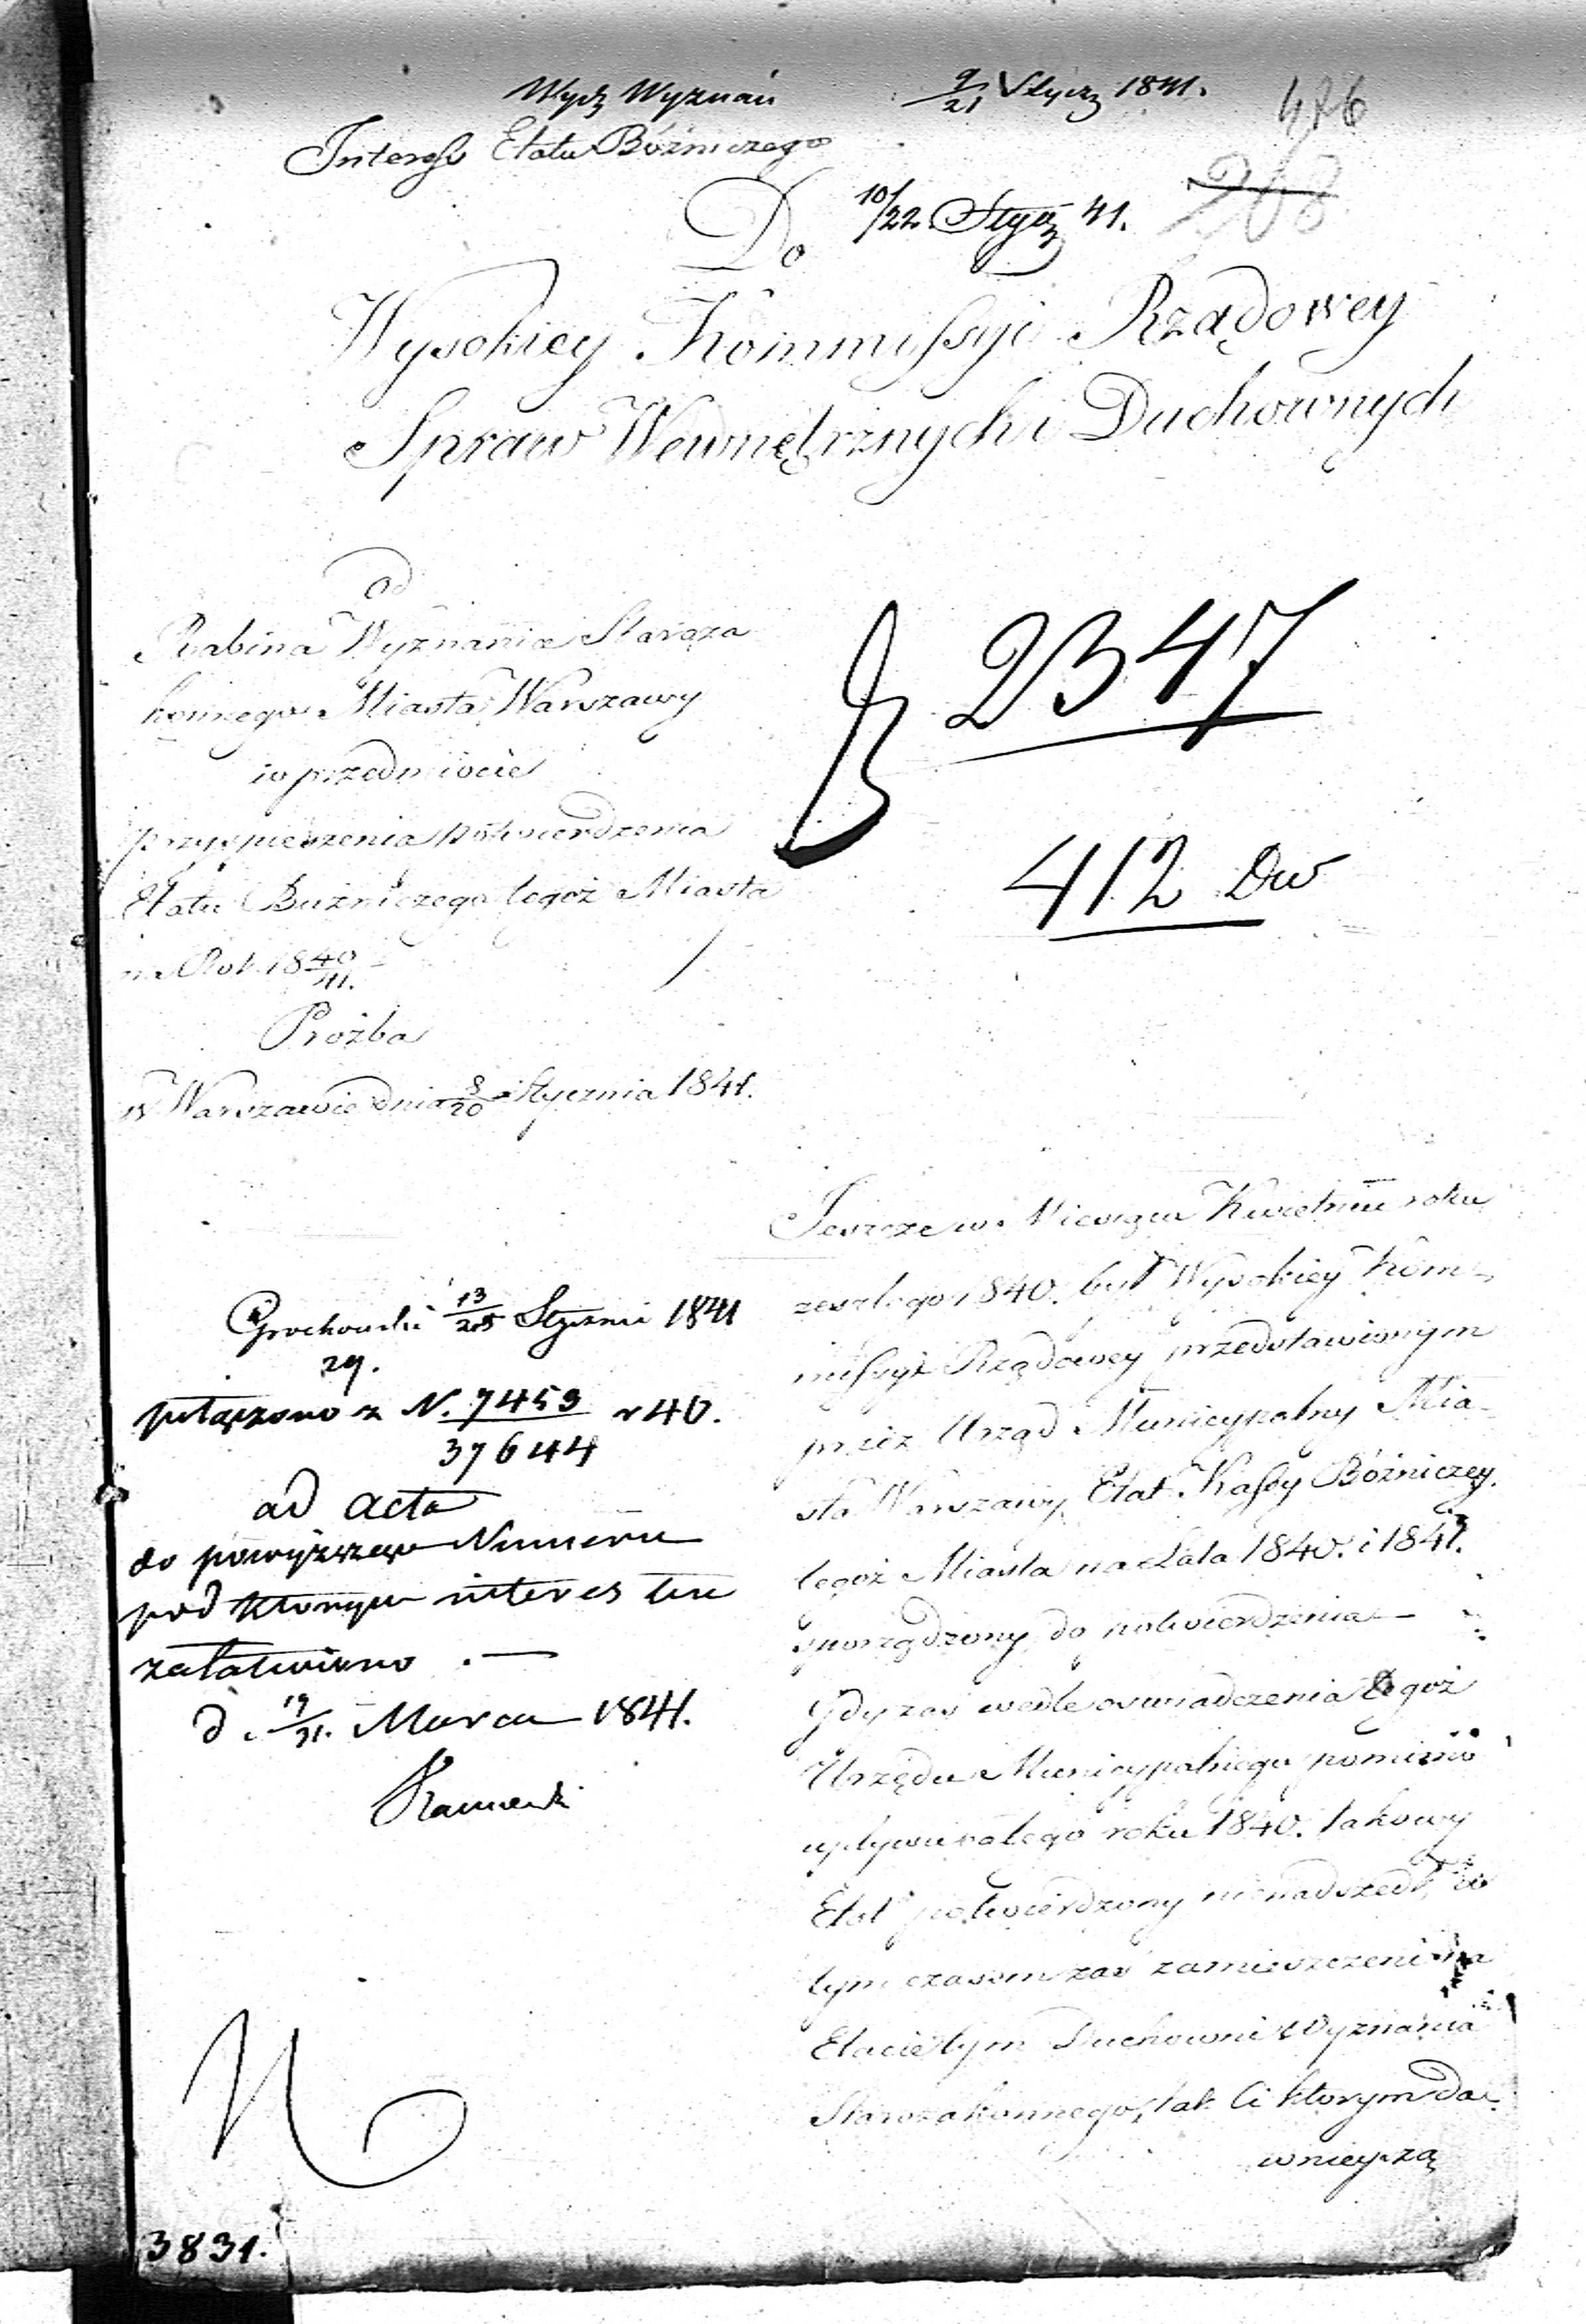 Wydz Wyznań
9/21 Stycz 1841.
426
Interess Etatu Bóżniczego
208
10/22 Stycz 41.
Do
Wysokiey Kommissyi Rządowey
Spraw Wewnętrznych i Duchownych
Od
Rabina Wyznania Staroza
konnego Miasta Warszawy
w przedmiocie
przyspieszenia potwierdzenia
Etatu Bużniczego tegoż Miasta
na Rok 1840/41.
Prożba
w Warszawie dnia 8/20 Stycznia 1841.
2347
412 Dw
Grochowski 13/25 Stycznia 1841
29.
połączono z N. 7453/37644 r 40.
ad acta
do powyższego Numeru
pod którym interes ten
załatwiono . —
d. 19/31. Marca 1841.
Jeszcze w Miesiącu Kwietniu roku
zeszłego 1840. był Wysokiey Kom-
missyi Rządowey przedstawionym
przez Urząd Municypalny Mia-
sta Warszawy, Etat Kassy Bóżniczey
tegoż Miasta na Lata 1840. i 1841.
sporządzony do potwierdzenia —
Gdy zaś wedle oswiadczenia tegoż
Urzędu Municypalnego pomimo
upływu całego roku 1840. takowy
Etat potwierdzony nie nadszedł, w
tym czasem zaś zamieszczeni na
Etacie tym Duchowni Wyznania
Starozakonnego, tak Ci którym da-
wniey są
3831.